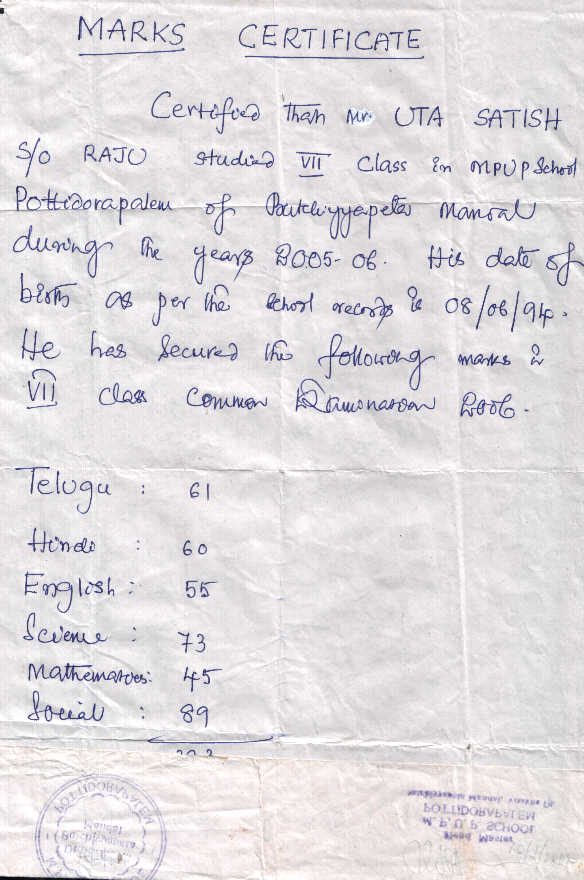 MARKS CERTIFICATE
Certified that Mr. UTA SATISH
S/o RAJU studied VII Class in MPUP School
Pottidorapalem of Butchiyyapeta Mandal
during the years 2005-06. His date of
birth as per the school records is 08/06/94.
He has secured the following marks in
VII class Common Examination 2006.
Telugu : 61
Hindi : 60
English : 55
Science : 73
Mathematics: 45
Social : 89
POTTIDORAPALEM
POTTIDORAPALEM
M. P. U. P. SCHOOL
Head Master